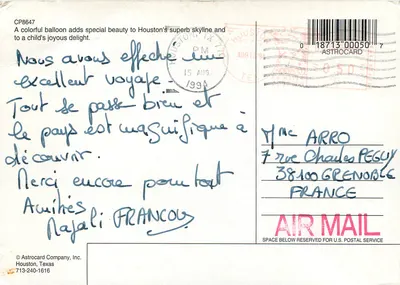 CP8647
A colorful balloon adds special beauty to Houston's superb skyline and
to a child's joyous delight.
0 18713 00050 7
ASTROCARD
PM
15 AUG
1994
Nous avons effectué un
excellent voyage.
Tout se passe bien et
le pays est magnifique à
découvrir.
Merci encore pour tout
Amitiés
Magali FRANCOU
M/Me ARRO
7 rue Charles PEGUY
38100 GRENOBLE
FRANCE
AIR MAIL
SPACE BELOW RESERVED FOR U.S. POSTAL SERVICE
© Astrocard Company, Inc.
Houston, Texas
713-240-1616